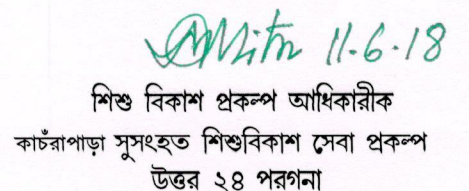 11.6.18
শিশু বিকাশ প্রকল্প আধিকারীক
কাচঁরাপাড়া সুসংহত শিশুবিকাশ সেবা প্রকল্প
উত্তর ২৪ পরগনা